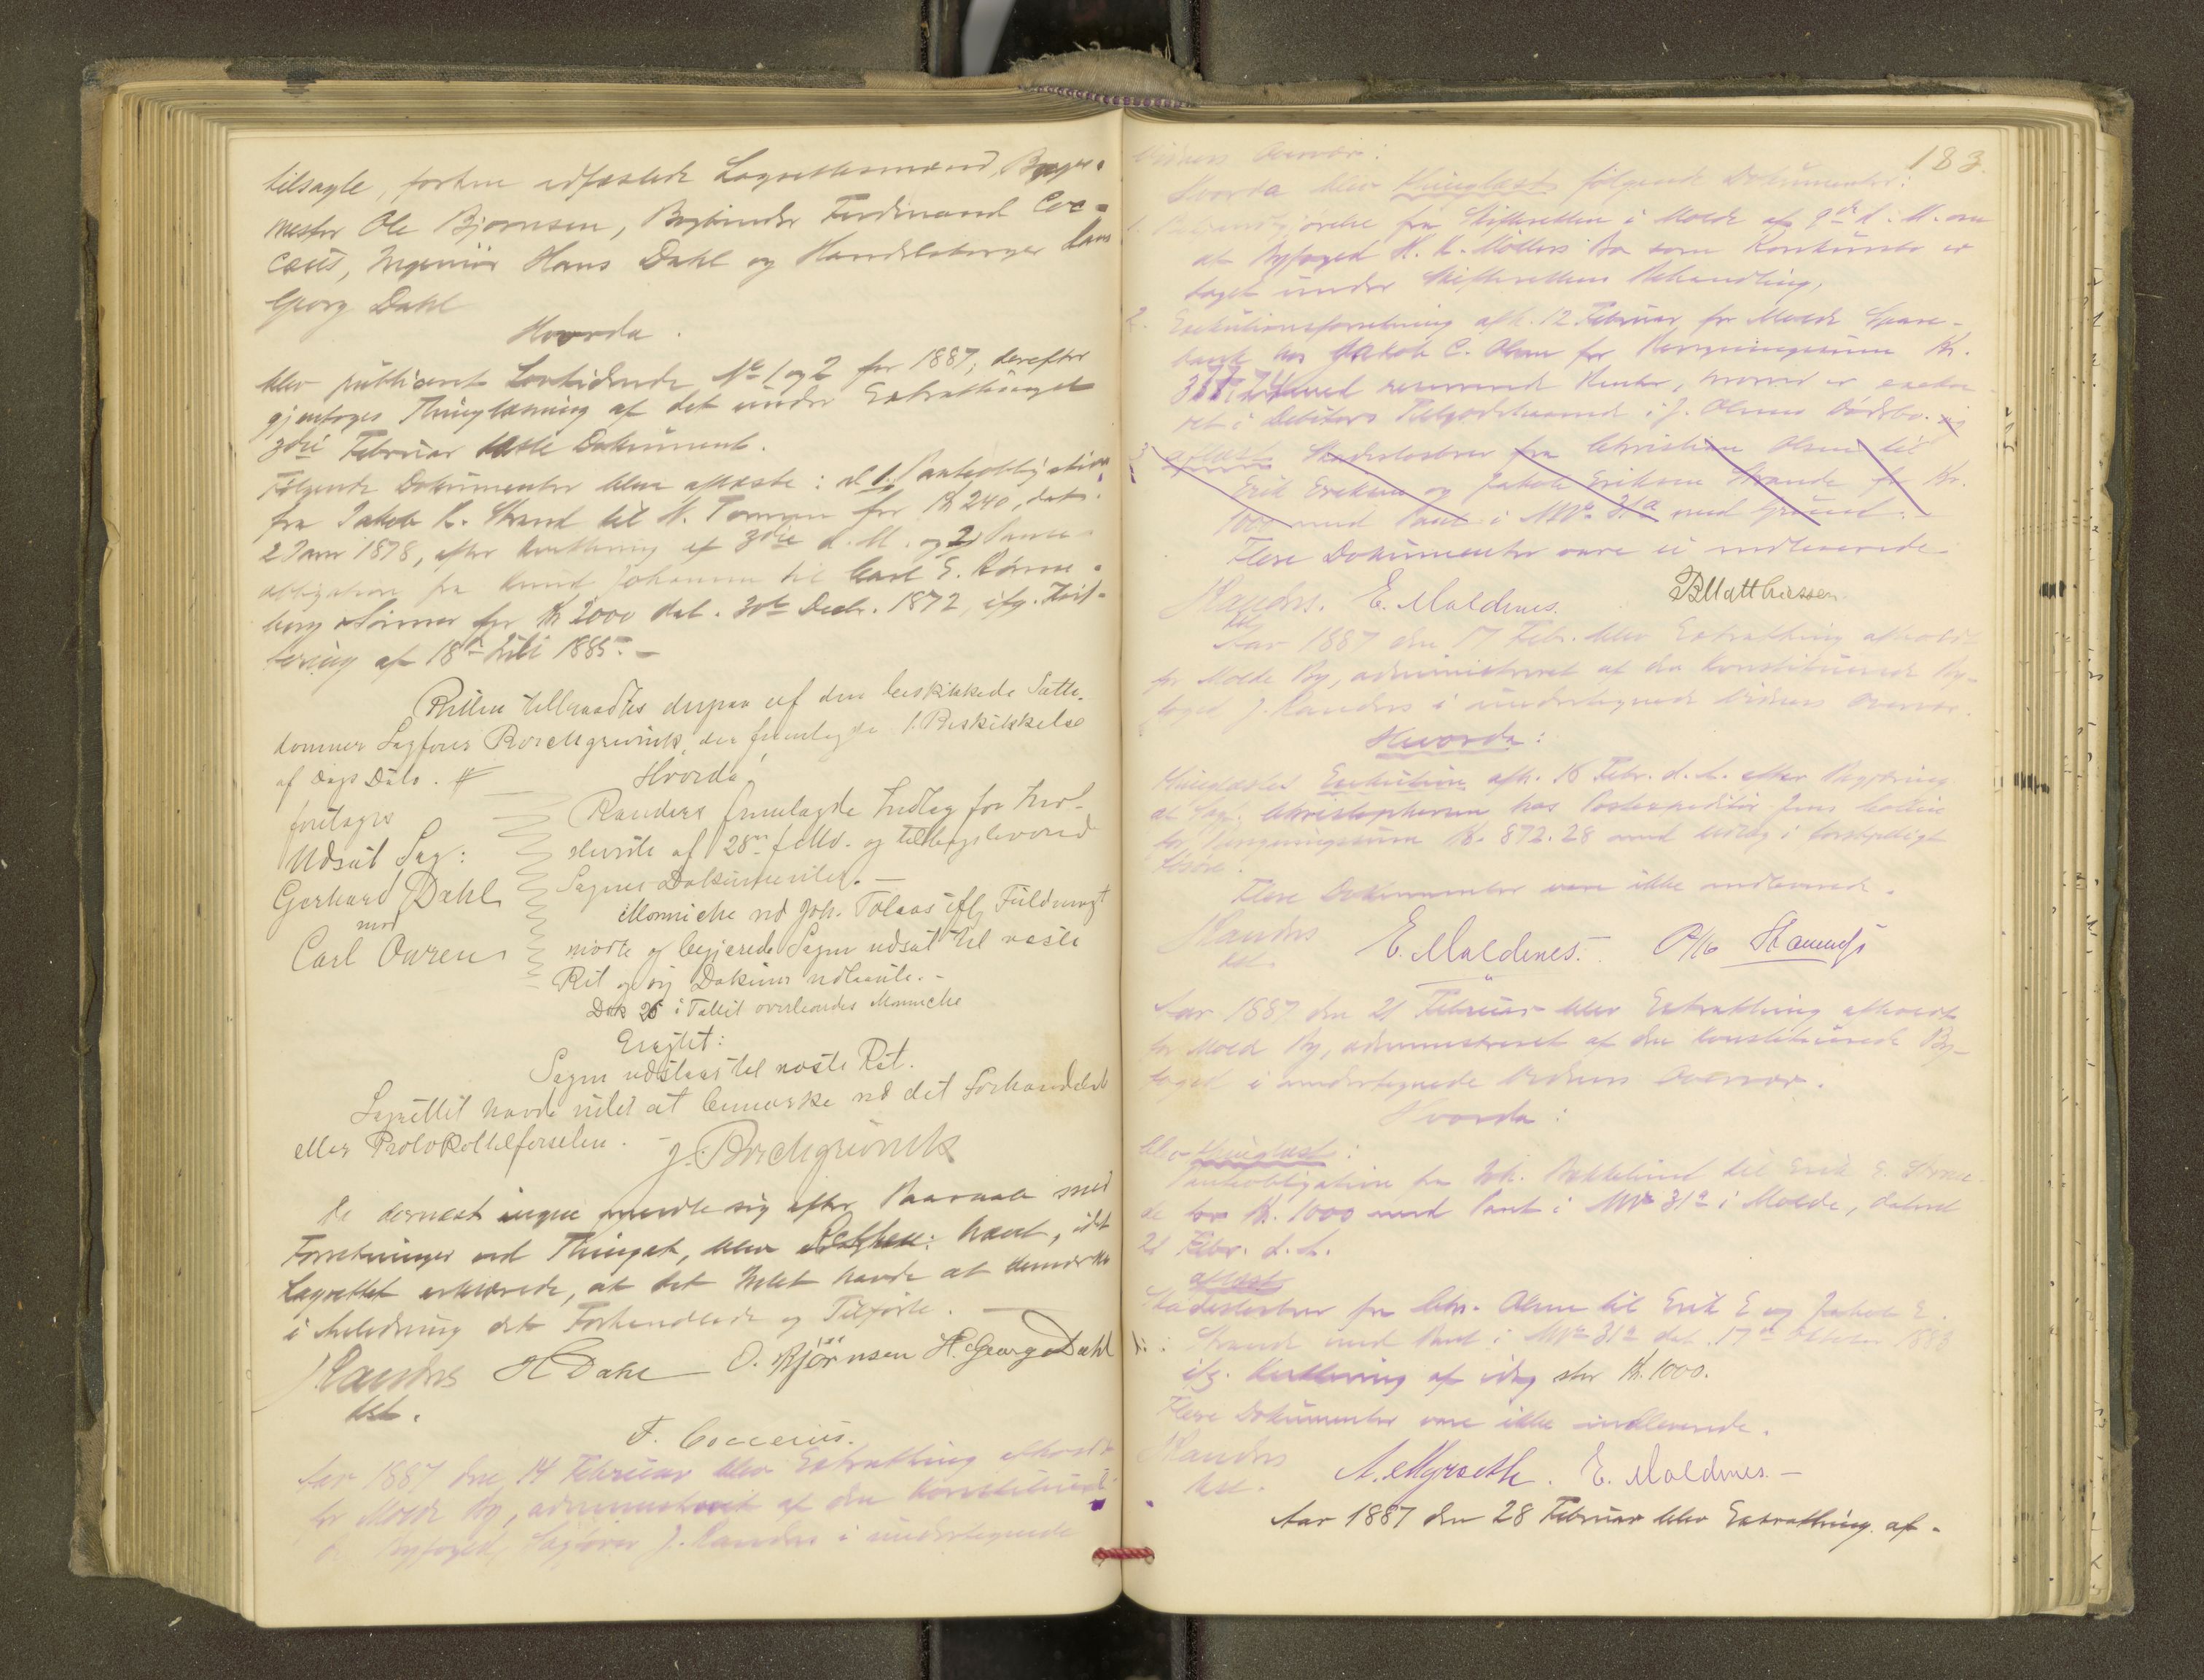 tilsagte, forhen edfæstede Lagrettesmænd, Bager-
mester Ole Bjørnsen, Bogbinder Ferdinand Coc-
ceüs, Ingeniör Hans Dahl og Handelsborger Hans
Georg Dahl
Hvorda.
blev publiceret Lovtidende No 1 og 2 for 1887, derefter
gjentoges Thinglæsning af det under Extrathinget
3die Februar læste Dokument.
Følgende Dokumenter blev aflæste: 1. Panteobligation
fra Jakob K. Strand til N. for Kr 240, dat.
2 Janr 1878, efter Kvittering af 3die d. M. og 2) Pante-
obligation fra Knud Johansen til Carl E. Rønne-
berg & Sønner for Kr 2000 dat. 30te Decbr. 1872, ifg. Kvit-
tering af 18de Juli 1885.-
Retten beklædtes derpaa af den beskikkede Sætte-
dommer Sagfører Borchgrevink, der fremlagde 1. Beskikkelse
af Dags Dato.
Hvorda!
foretages
Udsat Sag:
Gerhard Dahl
mod
Carl Owren
Randers fremlagde Indlæg for Hoved-
af 28de f. Md. og tilbageleverede
Sagens Dokumenter.-
Monniche ved Joh. Tolaas ifg Fuldmagt
mødte og begjærede Sagen udsat til næste
Ret og sig Dokum. udlaante.-
Dok 26 i Tallet overleveredes Monniche
Eragtet:
Sagen udstaar til næste Ret.
Lagrettet havde intet at bemærke ved det Forhandlede
eller Protokoltilførselen.- J. Borchgrevink
Da dernæst ingen meldte sig efter Paaraab med
Forretninger ved Thinget, blev Retten hævet, idet
Lagrettet erklærede, at det Intet havde at bemærke
i Anledning det Forhandlede og Tilførte.
J. Randers H Dahl O. Bjørnsen H. Georg Dahl
kst.
F. Cocceius.
Aar 1887 den 14 Februar blev Extrathing afholdt
for Molde By, administreret af den konstituere-
de Byfoged, Sagfører J. Randers i undertegnede
183.
Vidners Overvær:
Hvorda blev thinglæst følgende Dokumenter:
1. Bekjendtgjørelse fra Skifteretten i Molde af 9de d. M. om
at Byfoged H. K. Møllers Bo som Konkursbo er
taget under Skifterettens Behandling,
2. Exekutionsforretning afh. 12 Februar for Molde Spare-
bank hos Jakob C. Olsen for Hovedsum Kr.
317.74 med resterende Renter, hvorved er exeku-
ret i Debitors Tilgodehavende i J. Olsens Dødsbo.
3. aflæst Skadesløsbrev fra Christian Olsen til
Erik Eriksen og Jakob Eriksen Strande for Kr.
1000 med Pant i MNo 31a med Grund.
Flere Dokumenter vare ei indleverede.
J. Randers. E. Maldenes. B Matthiessen
kst.
Aar 1887 den 17 Febr. blev Extrathing afholdt
for Molde By, administreret af den konstituerede By-
foged J. Randers i undertegnede Vidners Overvær.
Hvorda:
thinglæstes Exekution afh. 16 Febr. d. A. efter Begjæring
af Sagf. Christophersen hos Postexpeditør Jens
for Kr. 872.28 med Udlæg i forskjelligt
Løsøre.
Flere Dokumenter vare ikke indleverede.
J Randers E. Maldenes.-
kst.
Aar 1887 den 21 Februar blev Extrathing afholdt
for Molde By, administreret af den konstituerede By-
foged i undertegnede Vidners Overvær.
Hvorda:
blev thinglæst:
Panteobligation fra Joh. til Erik E. Stran-
de for Kr. 1000 med Pant i MNo 31a i Molde, dateret
21 Febr. d. A.
aflæst
Skadesløsbrev fra Chr. Olsen til Erik E og Jakob E.
Strande med Pant i MNo 31a dat. 17de Oktober 1883
ifg. Kvittering af idag stor Kr. 1000.
Flere Dokumenter vare ikke indleverede.
J Randers A. Myrseth. E. Maldenes.-
kst.
Aar 1887 den 28 Februar blev Extrathing af-